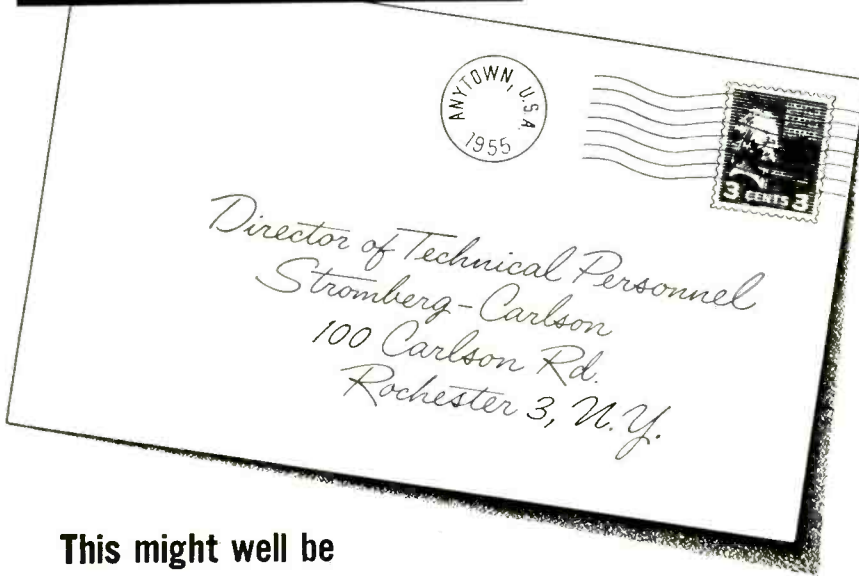 ANYTOWN, U.S.A.
1955
3 CENTS 3
Director of Technical Personnel
Stromberg-Carlson
100 Carlson Rd.
Rochester 3, N.Y.
This might well be